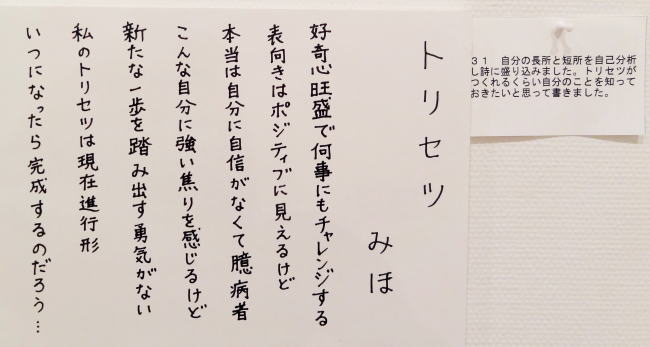 トリセツ
みほ
好奇心旺盛で何事にもチャレンジする
表向きはポジティブに見えるけど
本当は自分に自信がなくて臆病者
こんな自分に強い焦りを感じるけど
新たな一歩を踏み出す勇気がない
私のトリセツは現在進行形
いつになったら完成するのだろう…
31　自分の長所と短所を自己分析
し詩に盛り込みました。トリセツが
つくれるくらい自分のことを知って
おきたいと思って書きました。